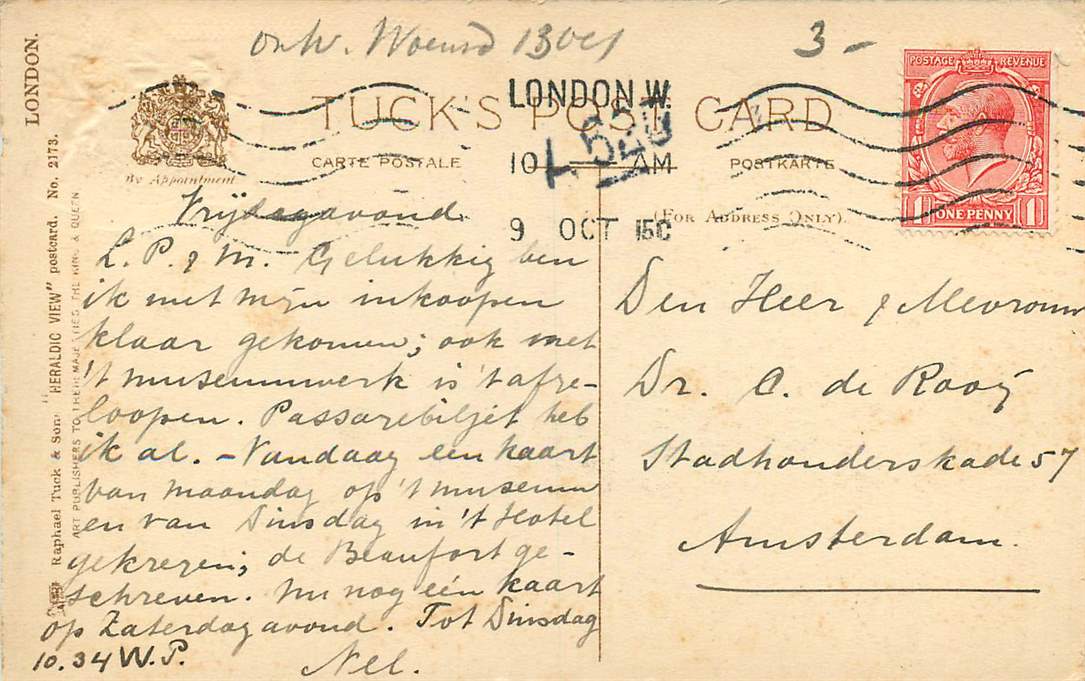 ontv. Woensd 13 Oct
3 -
LONDON.
LONDON.W.
10 AM
9 OCT 15C
L 528
POSTAGE REVENUE
1 ONE PENNY 1
TUCK'S POST CARD
CARTE POSTALE
POSTKARTE
By Appointment
(FOR ADDRESS ONLY).
Raphael Tuck & Sons' "HERALDIC VIEW" postcard. No. 2173.
ART PUBLISHERS TO THEIR MAJESTIES THE KING & QUEEN
Vrijdagavond.
L. P. & M. Gelukkig ben
ik met mijn inkoopen
klaar gekomen; ook met
't museumwerk is 't afge-
loopen. Passagebiljet heb
ik al. - Vandaag een kaart
van maandag op 't museum
en van Dinsdag in 't Hotel
gekregen; de Beaufort ge-
schreven. Nu nog één kaart
op Zaterdagavond. Tot Dinsdag
10.34 W.P.
Nel.
Den Heer & Mevrouw
Dr. C. de Rooy
Stadhouderskade 57
Amsterdam.